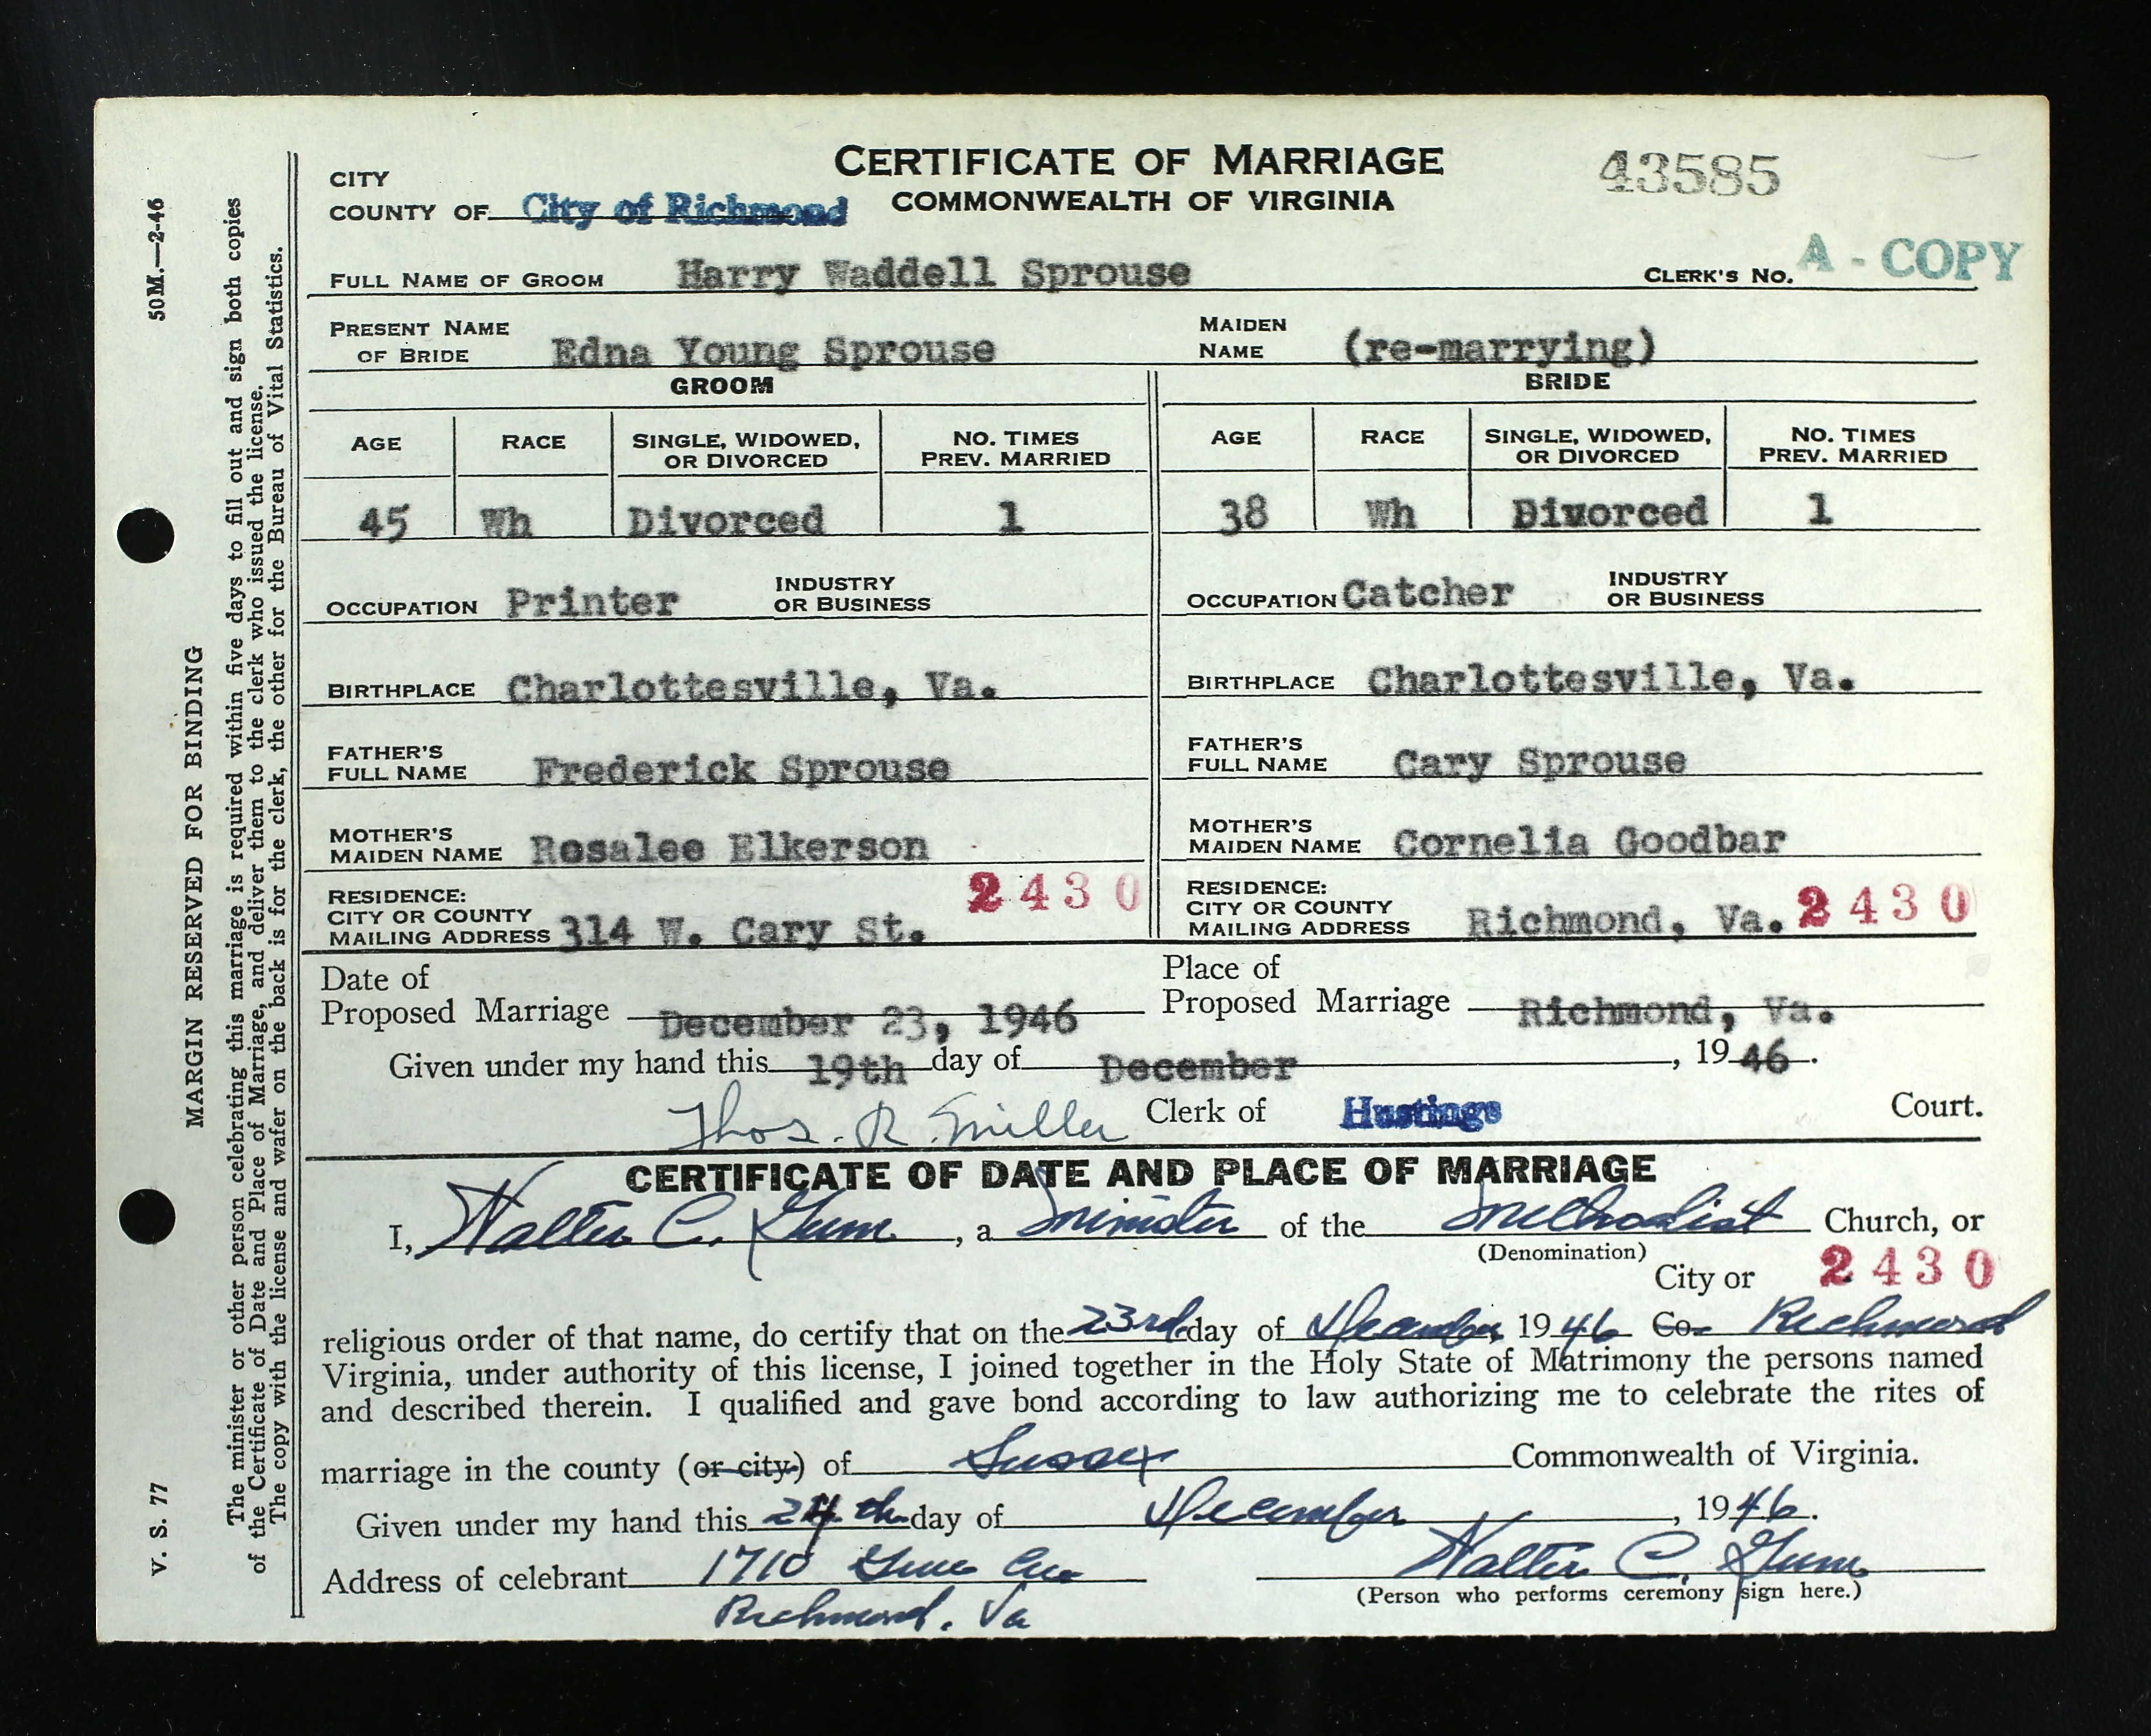 CERTIFICATE OF MARRIAGE
COMMONWEALTH OF VIRGINIA
43585
CITY
COUNTY OF City of Richmond
FULL NAME OF GROOM Harry Waddell Sprouse CLERK'S NO. A - COPY
PRESENT NAME OF BRIDE Edna Young Sprouse MAIDEN NAME (re-marrying)
GROOM BRIDE
AGE RACE SINGLE, WIDOWED, OR DIVORCED NO. TIMES PREV. MARRIED AGE RACE SINGLE, WIDOWED, OR DIVORCED NO. TIMES PREV. MARRIED
45 Wh Divorced 1 38 Wh Divorced 1
OCCUPATION Printer INDUSTRY OR BUSINESS OCCUPATION Catcher INDUSTRY OR BUSINESS
BIRTHPLACE Charlottesville, Va. BIRTHPLACE Charlottesville, Va.
FATHER'S FULL NAME Frederick Sprouse FATHER'S FULL NAME Cary Sprouse
MOTHER'S MAIDEN NAME Rosalee Elkerson MOTHER'S MAIDEN NAME Cornelia Goodbar
RESIDENCE: CITY OR COUNTY MAILING ADDRESS 314 W. Cary St. 2430 RESIDENCE: CITY OR COUNTY MAILING ADDRESS Richmond, Va. 2430
Date of Proposed Marriage December 23, 1946 Place of Proposed Marriage Richmond, Va.
Given under my hand this 19th day of December, 1946.
Thos. R. Miller Clerk of Hustings Court.
CERTIFICATE OF DATE AND PLACE OF MARRIAGE
I, Walter C. Gum, a minister of the Methodist Church, or
(Denomination)
City or 2430
religious order of that name, do certify that on the 23rd day of December, 1946 Co. Richmond
Virginia, under authority of this license, I joined together in the Holy State of Matrimony the persons named
and described therein. I qualified and gave bond according to law authorizing me to celebrate the rites of
marriage in the county (or city) of Sussex Commonwealth of Virginia.
Given under my hand this 24th day of December, 1946.
Address of celebrant 1710 Ave Walter C. Gum
Richmond, Va (Person who performs ceremony sign here.)
V. S. 77 MARGIN RESERVED FOR BINDING 50M.—2-46
The minister or other person celebrating this marriage is required within five days to fill out and sign both copies
of the Certificate of Date and Place of Marriage, and deliver them to the clerk who issued the license.
The copy with the license and wafer on the back is for the clerk, the other for the Bureau of Vital Statistics.